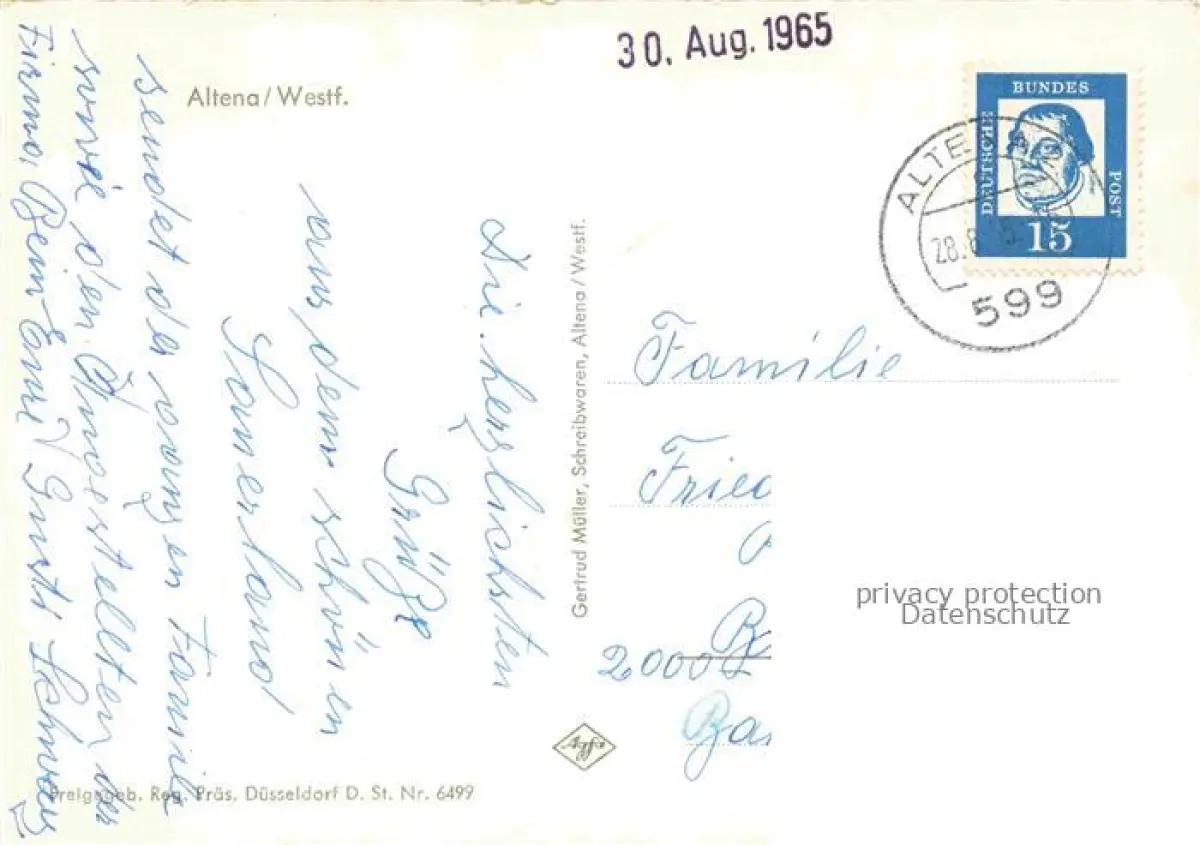 30. Aug. 1965
Altena/Westf.
BUNDES
DEUTSCHE
POST
15
ALTENA
28.8.
599
Die herzlichsten
Grüße
aus dem schönen
Sauerland
sendet der ganzen Familie
sowie den Angestellten der
Firma,
Gertrud Müller, Schreibwaren, Altena/Westf.
Familie
Fried
2000
Ba
privacy protection
Datenschutz
Agfa
Freigegeb. Reg. Präs. Düsseldorf D. St. Nr. 6499